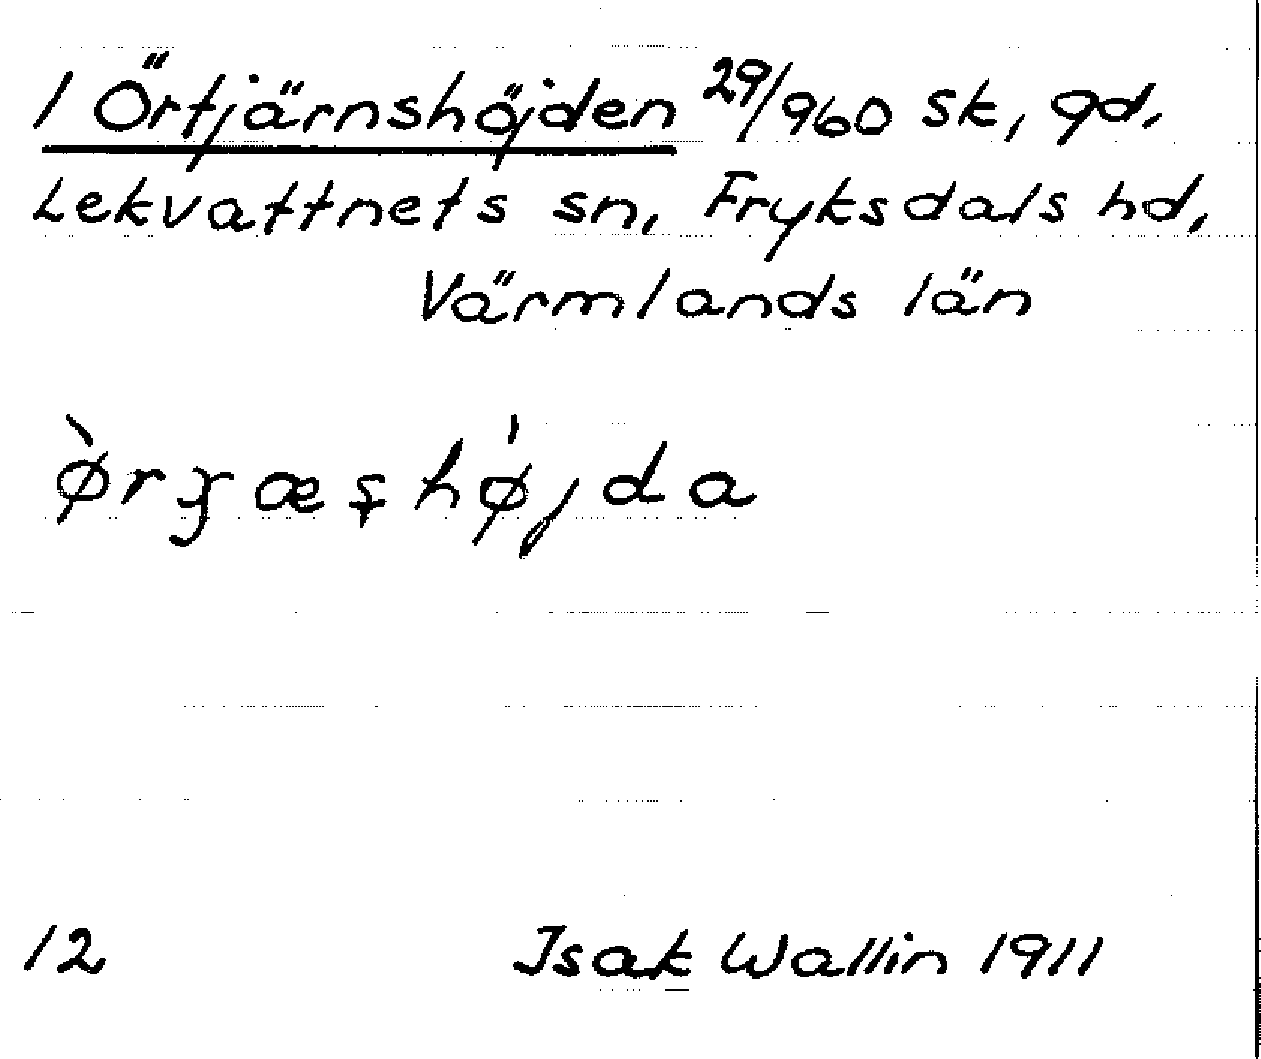 1 Örtjärnshöjden 29/960 sk, gd.
Lekvattnets sn, Fryksdals hd,
Värmlands län
12
Isak Wallin 1911